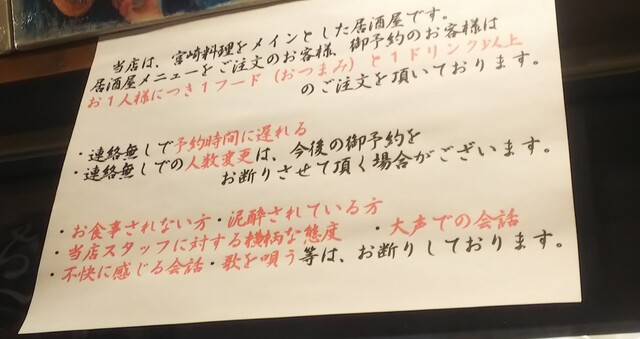 当店は、宮崎料理をメインとした居酒屋です。
居酒屋メニューをご注文のお客様、御予約のお客様は
お1人様につき1フード(おつまみ)と1ドリンク以上
のご注文を頂いております。
・連絡無しで予約時間に遅れる
・連絡無しでの人数変更は、今後の御予約を
お断りさせて頂く場合がございます。
・お食事されない方・泥酔されている方
・当店スタッフに対する横柄な態度・大声での会話
・不快に感じる会話・歌を唄う等は、お断りしております。